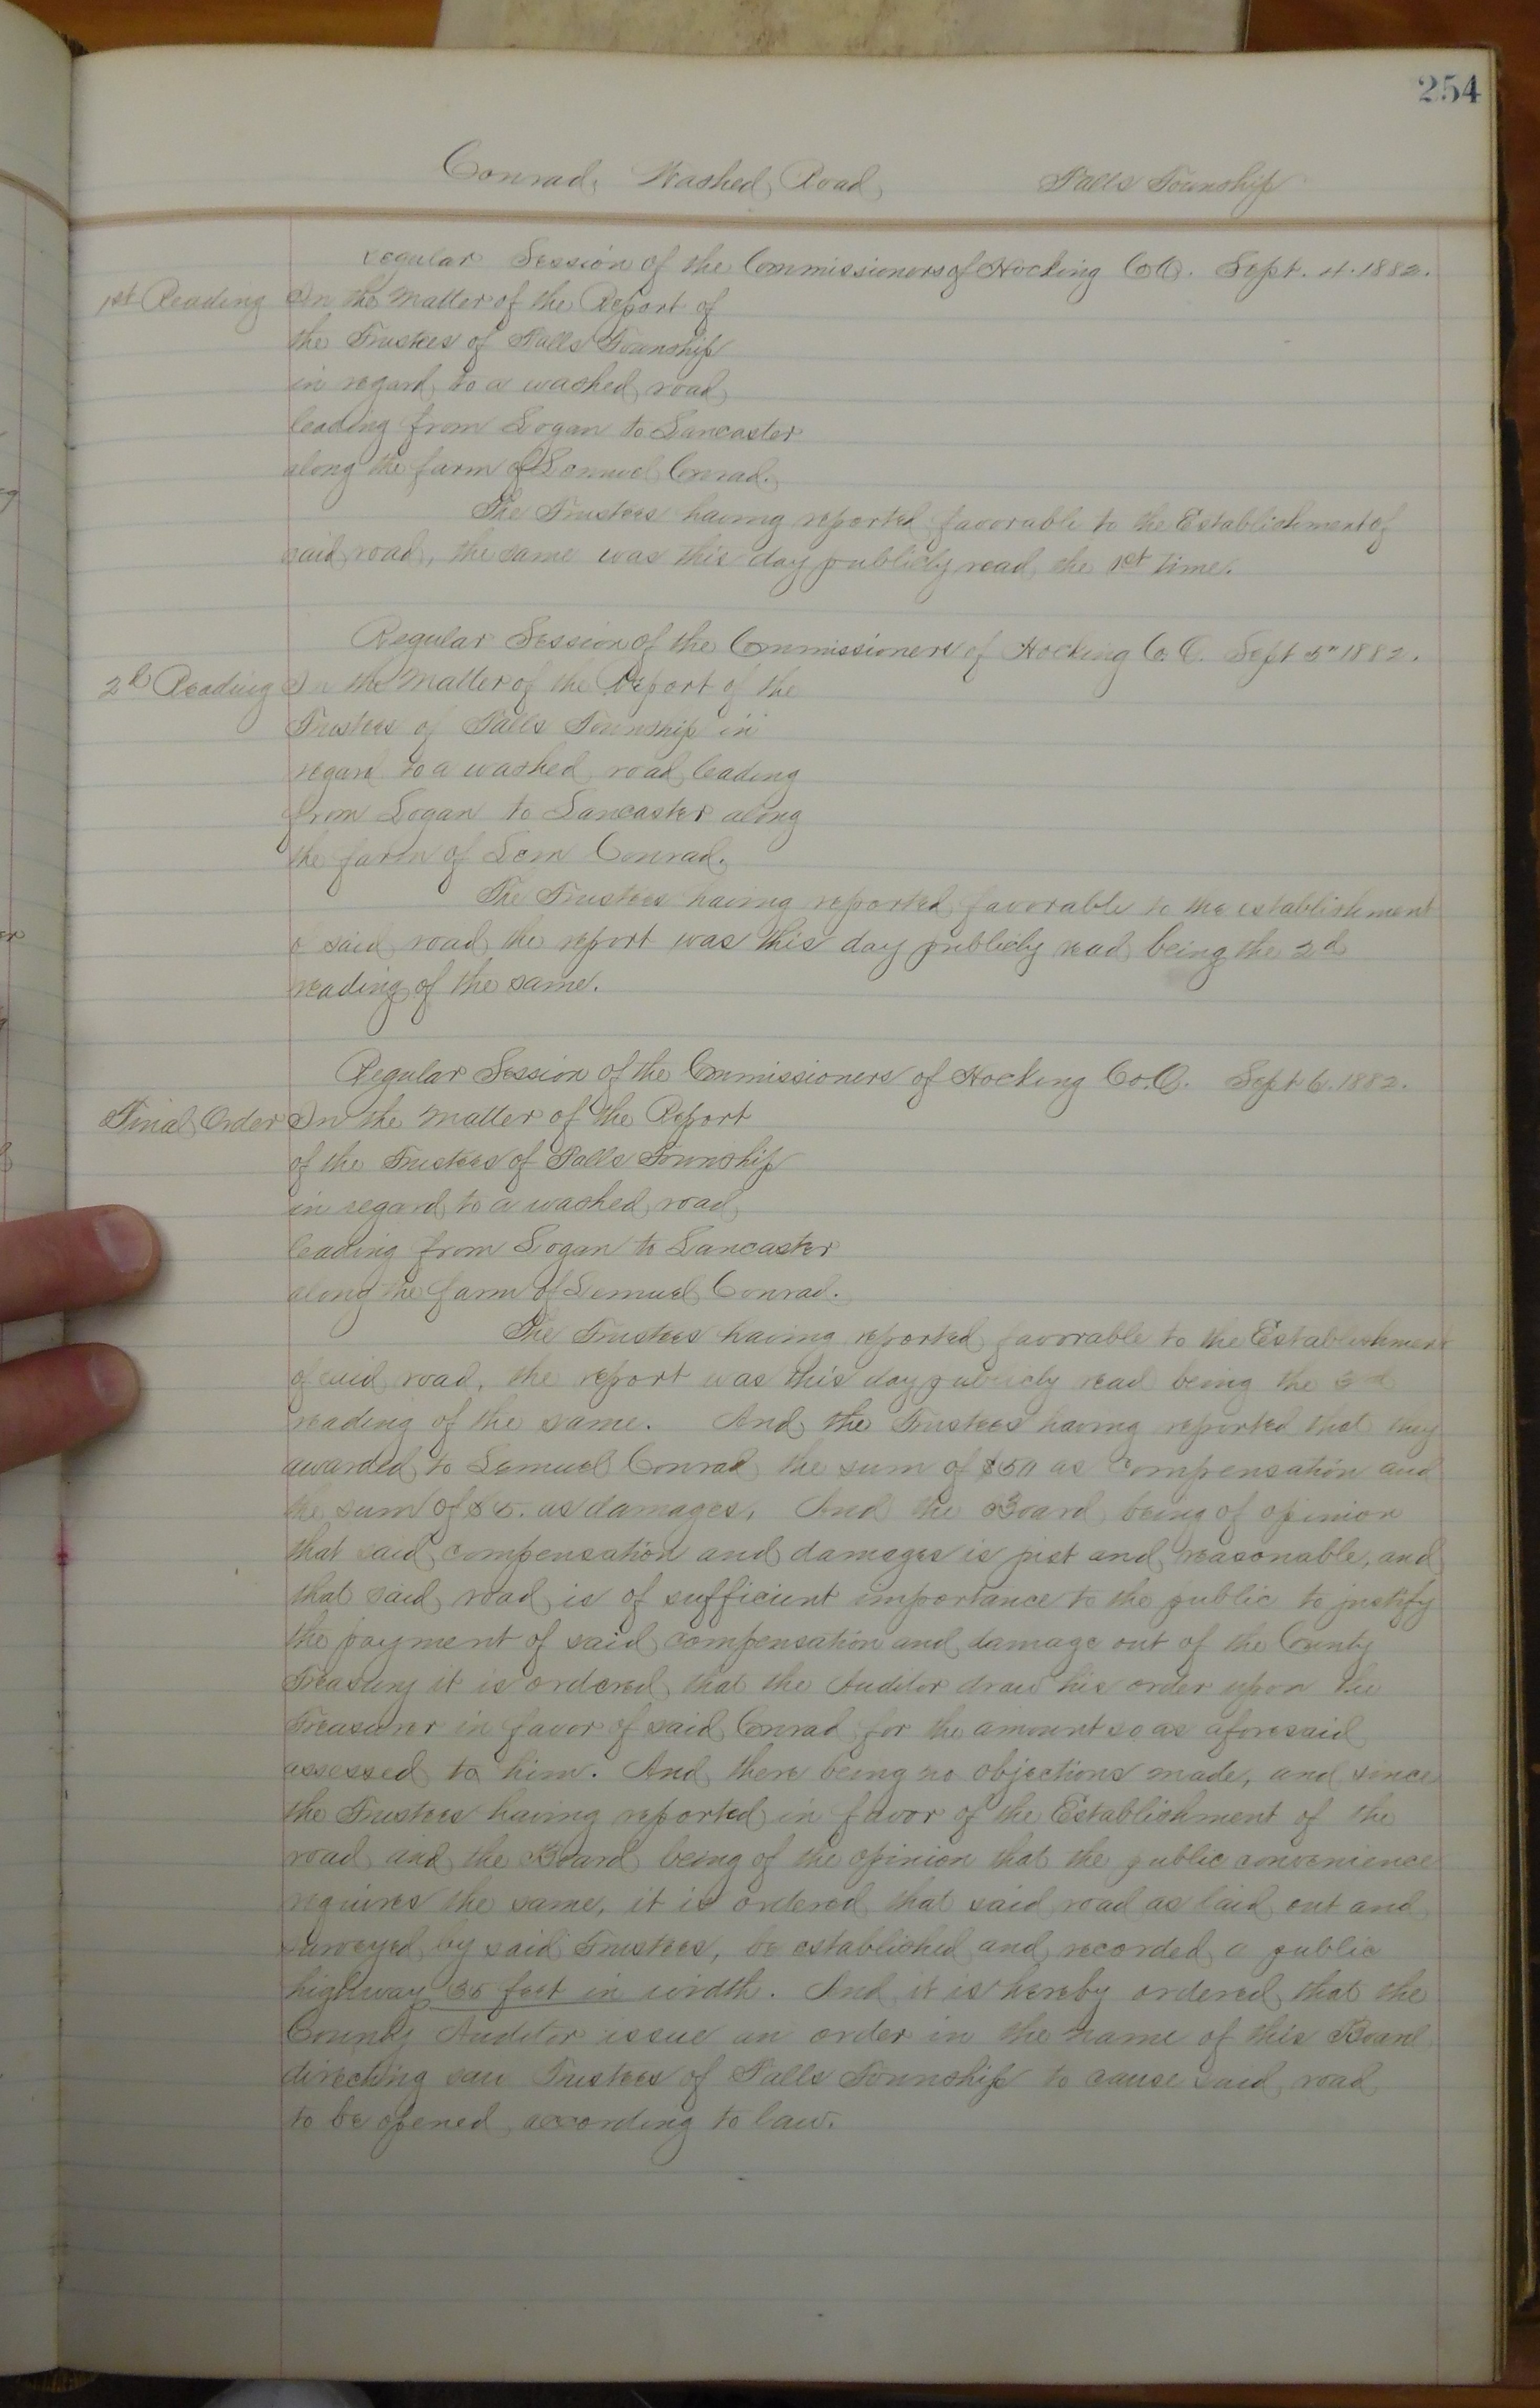 254
Conrad, Washed Road, Falls Township
Regular Session of the Commissioners of Hocking Co O. Sept. 4. 1882.
1st Reading In the Matter of the Report of
the Trustees of Falls Township
in regard to a washed road
leading from Logan to Lancaster
along the farm of Lemuel Conrad.
The Trustees having reported favorable to the Establishment of
said road, the same was this day publicly read the 1st time.
Regular Session of the Commissioners of Hocking Co. O. Sept 5" 1882.
2d Reading In the Matter of the Report of the
Trustees of Falls Township in
regard to a washed road leading
from Logan to Lancaster along
the farm of Lem Conrad.
The Trustees having reported favorable to the establishment
of said road the report was this day publicly read being the 2d
reading of the same.
Regular Session of the Commissioners of Hocking Co. O. Sept 6. 1882.
Final Order In the Matter of the Report
of the Trustees of Falls Township
in regard to a washed road
leading from Logan to Lancaster
along the farm of Lemuel Conrad.
The Trustees having reported favorable to the Establishment
of said road, the report was this day publicly read being the 3d
reading of the same. And the Trustees having reported that they
awarded to Lemuel Conrad the sum of as compensation and
the sum of $5. as damages, And the Board being of opinion
that said compensation and damages is just and reasonable, and
that said road is of sufficient importance to the public to justify
the payment of said compensation and damage out of the County
Treasury it is ordered that the Auditor draw his order upon the
Treasurer in favor of said Conrad for the amount so as aforesaid
assessed to him. And there being no objections made, and since
the Trustees having reported in favor of the Establishment of the
road and the Board being of the opinion that the public convenience
requires the same, it is ordered that said road as laid out and
surveyed by said Trustees, be established and recorded a public
highway 35 feet in width. And it is hereby ordered that the
County Auditor issue an order in the name of this Board
directing said Trustees of Falls Township to cause said road
to be opened according to law.